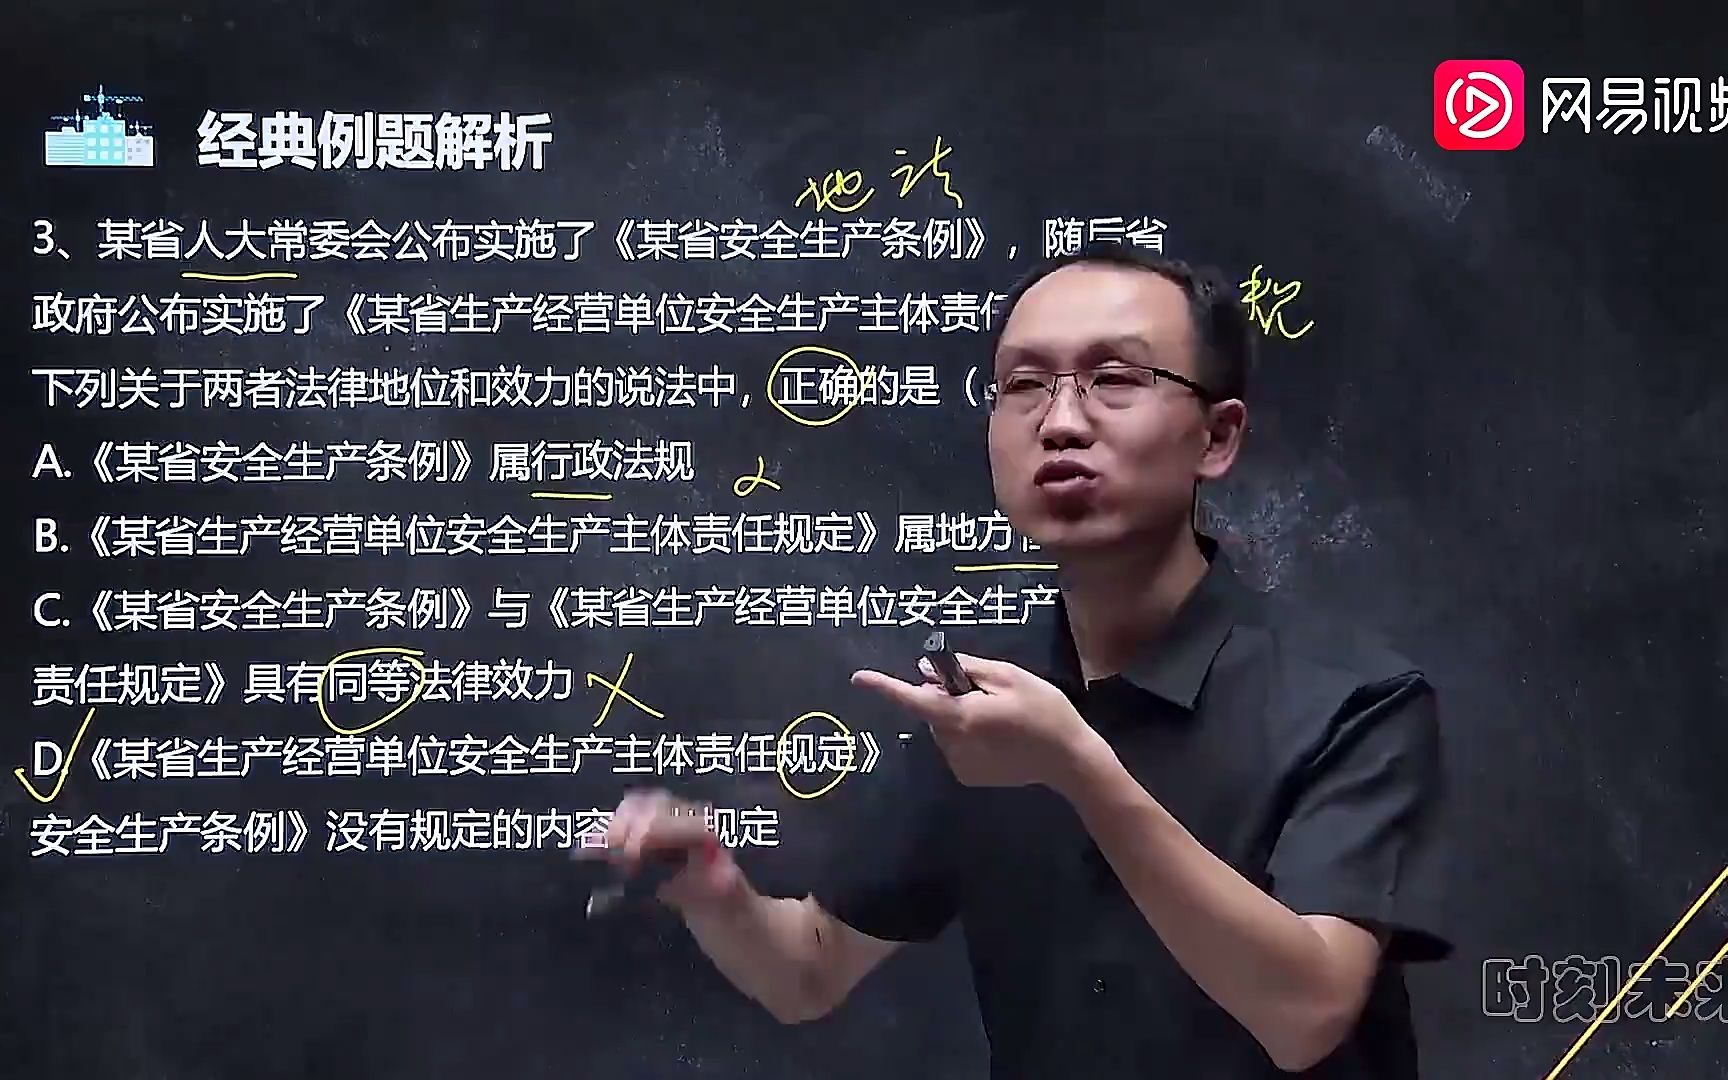 网易视频
经典例题解析
地法
3、某省人大常委会公布实施了《某省安全生产条例》，随后省
政府公布实施了《某省生产经营单位安全生产主体责任
规
下列关于两者法律地位和效力的说法中，正确的是（
A.《某省安全生产条例》属行政法规
B.《某省生产经营单位安全生产主体责任规定》属地方
C.《某省安全生产条例》与《某省生产经营单位安全生产
责任规定》具有同等法律效力
D.《某省生产经营单位安全生产主体责任规定》
安全生产条例》没有规定的内容 规定
时刻未来